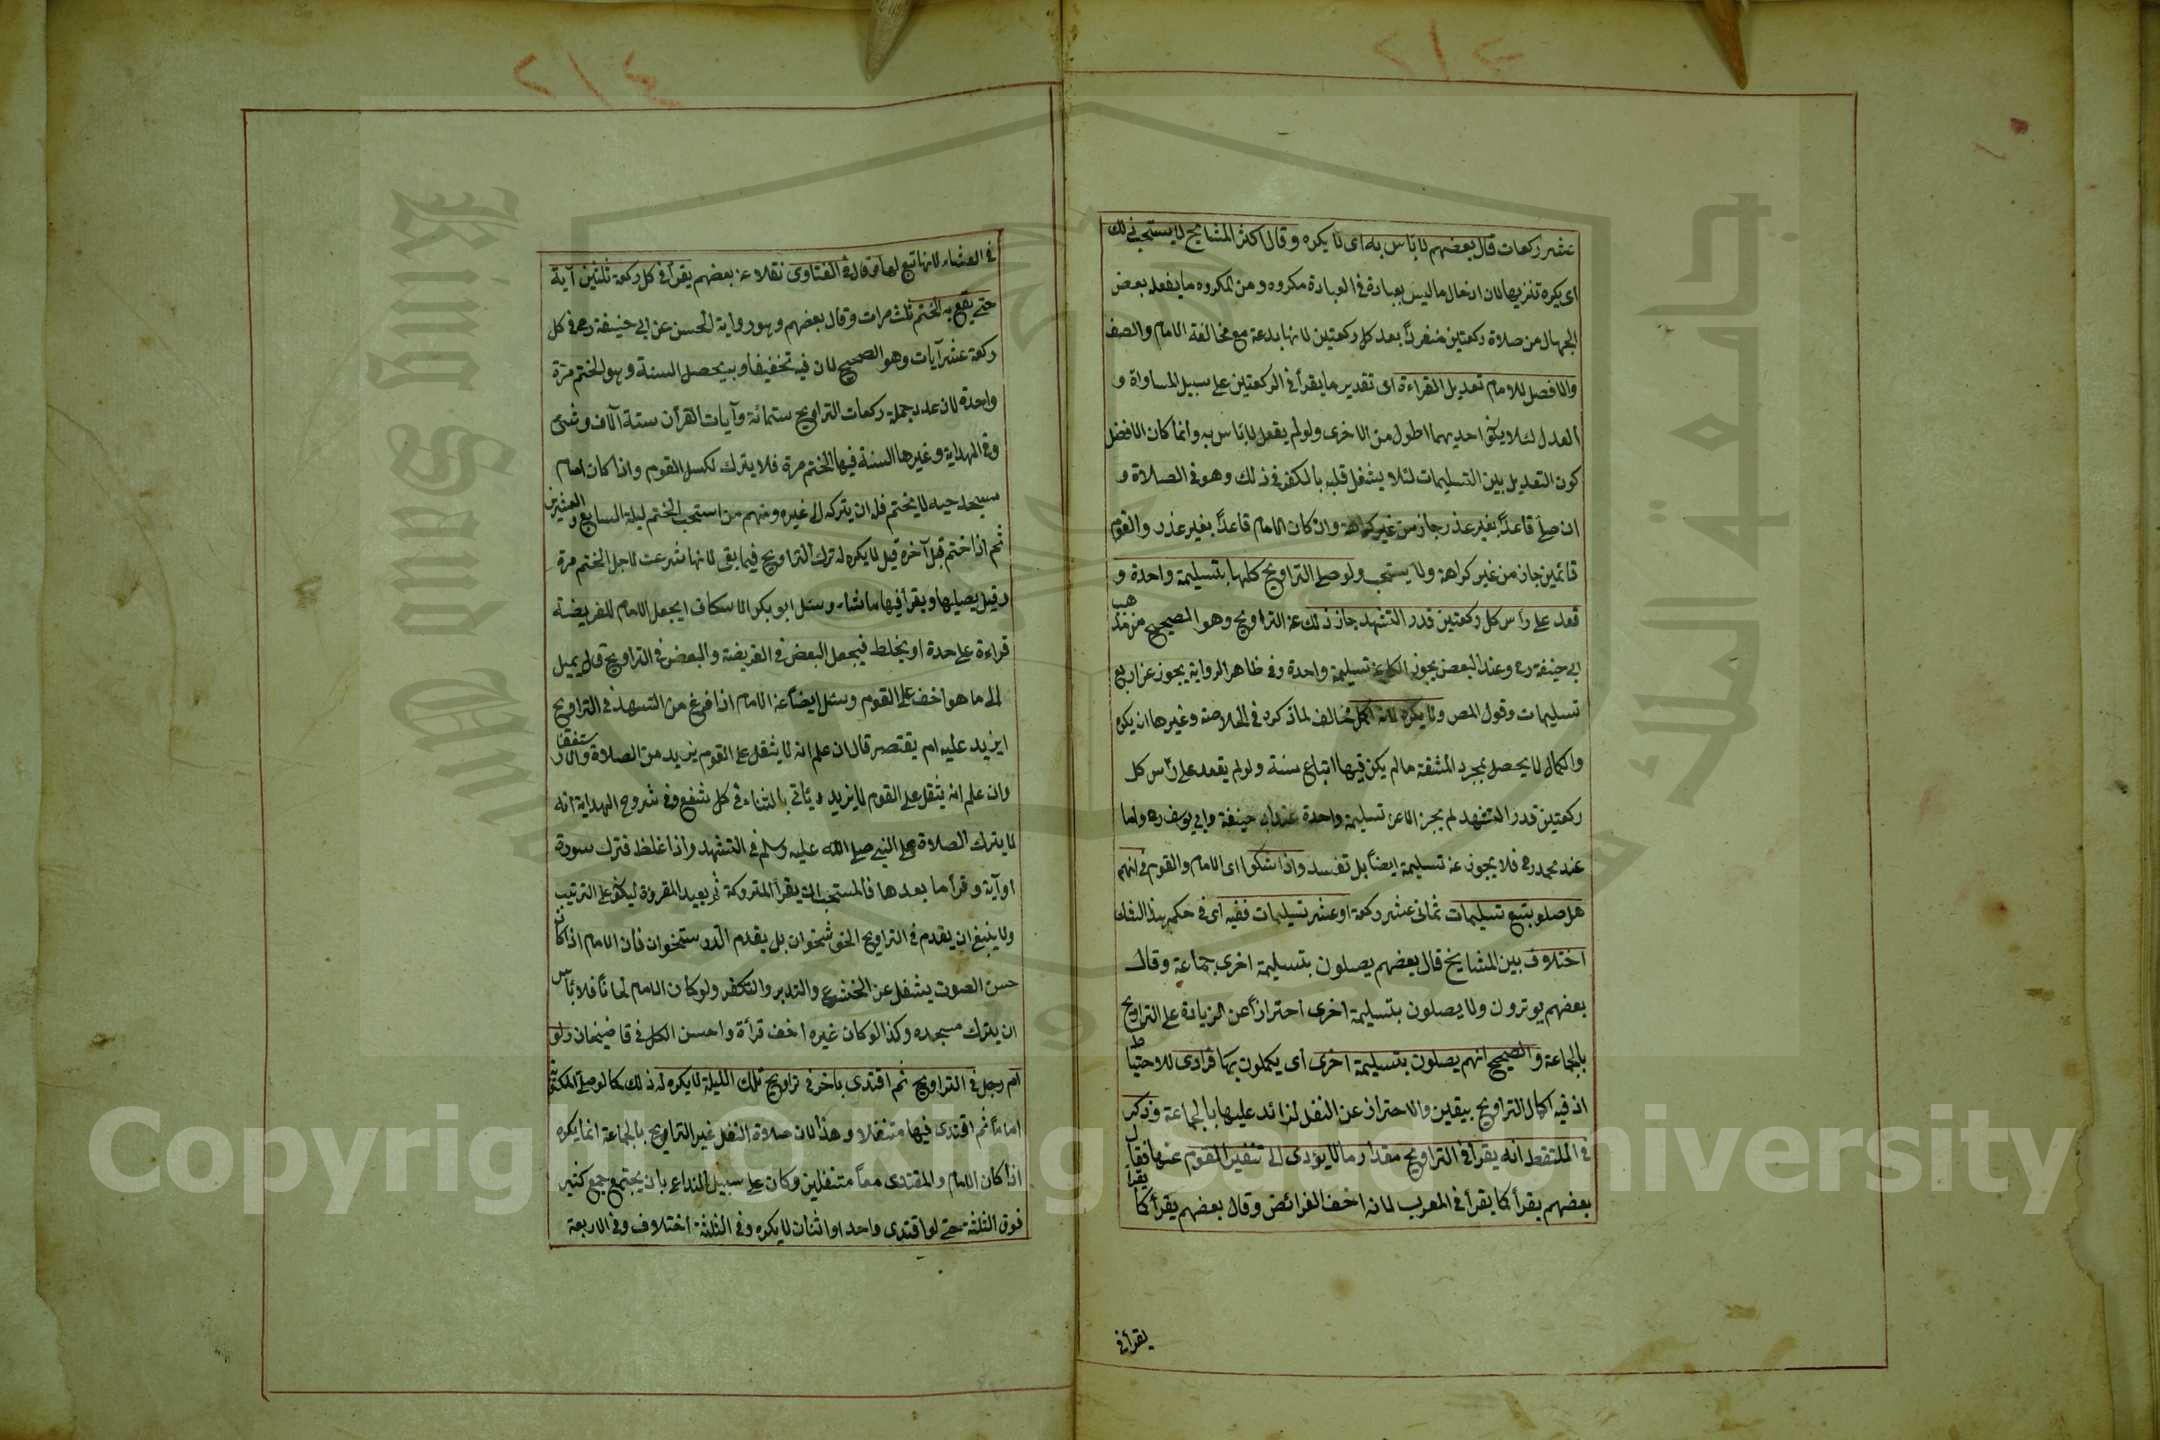 عشر ركعات قال بعضهم لا بأس به اى لا يكره وقال اكثر المشايخ لا يستحب ذلك
اى يكره تنزيها لان ادخال ما ليس بعبادة فى العبادة مكروه ومن المكروه ما يفعله بعض
الجهال من صلاة ركعتين منفرداً بعد كل ركعتين لانها بدعة مع مخالفة الامام والصف
والافضل للامام تعديل القراءة اى تقدير ما يقرأ فى الركعتين على سبيل المساواة و
العدل لئلا يكون احديهما اطول من الاخرى ولو لم يفعل لا بأس به وانما كان الافضل
كون التعديل بين التسليمات لئلا يشغل قلبه بالفكر فى ذلك وهو فى الصلاة و
ان صلى قاعداً بغير عذر جاز من غير كراهة وان كان الامام قاعداً بغير عذر والقوم
قائمين جاز من غير كراهة ولا يستحب ولو صلى التراويح كلها بتسليمة واحدة و
قعد على رأس كل ركعتين قدر التشهد جاز ذلك عن التراويح وهو الصحيح من مذهب
ابى حنيفة رح وعند البعض يجوز الكل عن تسليمة واحدة وفى ظاهر الرواية يجوز عن اربع
تسليمات وقول المص ولا يكره لانه اكمل مخالف لما ذكره فى الخلاصة وغيرها انه يكره
والكمال لا يحصل بمجرد المشقة ما لم يكن فيها اتباع سنة ولو لم يقعد على رأس كل
ركعتين قدر التشهد لم يجز الا عن تسليمة واحدة عند ابى حنيفة وابى يوسف رح واما
عند محمد رح فلا يجوز عن تسليمة ايضاً بل تفسد واذا شكوا اى الامام والقوم فى انهم
هل صلوا بتسع تسليمات ثمانى عشر ركعة او عشر تسليمات ففيه اى فى حكم هذا الفعل
اختلاف بين المشايخ قال بعضهم يصلون بتسليمة اخرى جماعة وقال
بعضهم يوترون ولا يصلون بتسليمة اخرى احترازاً عن الزيادة على التراويح
بالجماعة والصحيح انهم يصلون بتسليمة اخرى اى يكملون بها فرادى للاحتياط
اذ فيه اكمال التراويح بيقين والاحتراز عن النفل الزائد عليها بالجماعة وذكر
فى الملتقط انه يقرأ فى التراويح مقدار ما لا يؤدى الى تنفير القوم عنها فقال
بعضهم يقرأ كما يقرأ فى المغرب لانه اخف الفرائض وقال بعضهم يقرأ كما يقرأ
يقرأ فى
فى العشاء لانها تبع لها قال فى الفتاوى نقلا عن بعضهم يقرأ فى كل ركعة ثلثين آية
حتى يقع به الختم ثلث مرات وقال بعضهم وهو رواية الحسن عن ابى حنيفة رح فى كل
ركعة عشر آيات وهو الصحيح لان فيه تخفيفا وبه يحصل السنة وهو الختم مرة
واحدة لان عدد جملة ركعات التراويح ستمائة وآيات القرآن ستة آلاف وشئ
وفى الهداية وغيرها السنة فيها الختم مرة فلا يترك لكسل القوم واذا كان امام
مسجد حيه لا يختم فله ان يتركه الى غيره ومنهم من استحب الختم ليلة السابع والعشرين
ثم اذا ختم قبل آخره قيل لا يكره له ترك التراويح فيما بقى لانها شرعت لاجل الختم مرة
وقيل يصليها ويقرأ فيها ما شاء وسئل ابو بكر الاسكاف ايجعل الامام للفريضة
قراءة على حدة او يخلط فيجعل البعض فى الفريضة والبعض فى التراويح قال يميل
الى ما هو اخف على القوم وسئل ايضاً عن الامام اذا فرغ من التشهد فى التراويح
ايزيد عليه ام يقتصر قال ان علم انه لا يثقل على القوم يزيد من الصلاة والاستغفار
وان علم انه يثقل على القوم لا يزيد ويأتى بالثناء فى كل شفع وفى شروح الهداية انه
لا يترك الصلاة على النبى صلى الله عليه وسلم فى التشهد واذا غلط فترك سورة
او آية وقرأ ما بعدها فالمستحب ان يقرأ المتروكة ثم يعيد المقروة ليكون على الترتيب
ولا ينبغى ان يقدم فى التراويح الخوشخوان بل يقدم الدرستخوان فان الامام اذا كان
حسن الصوت يشغل عن الخشوع والتدبر والتفكر ولو كان الامام لحانا فلا بأس
ان يترك مسجده وكذا لو كان غيره اخف قرأة واحسن الكل فى قاضيخان ولو
ام رجل فى التراويح ثم اقتدى بآخر فى تراويح تلك الليلة لا يكره له ذلك كما لو صلى المكتوبة
اماماً ثم اقتدى فيها متنفلا وهذا لان صلاة النفل غير التراويح بالجماعة انما يكره
اذا كان الامام والمقتدى معاً متنفلين وكان على سبيل التداعى بان يجتمع جمع كثير
فوق الثلثة حتى لو اقتدى واحد او اثنان لا يكره وفى الثلثة اختلاف وفى الاربعة
King Saud University
جامعة الملك سعود
Copyright © King Saud University